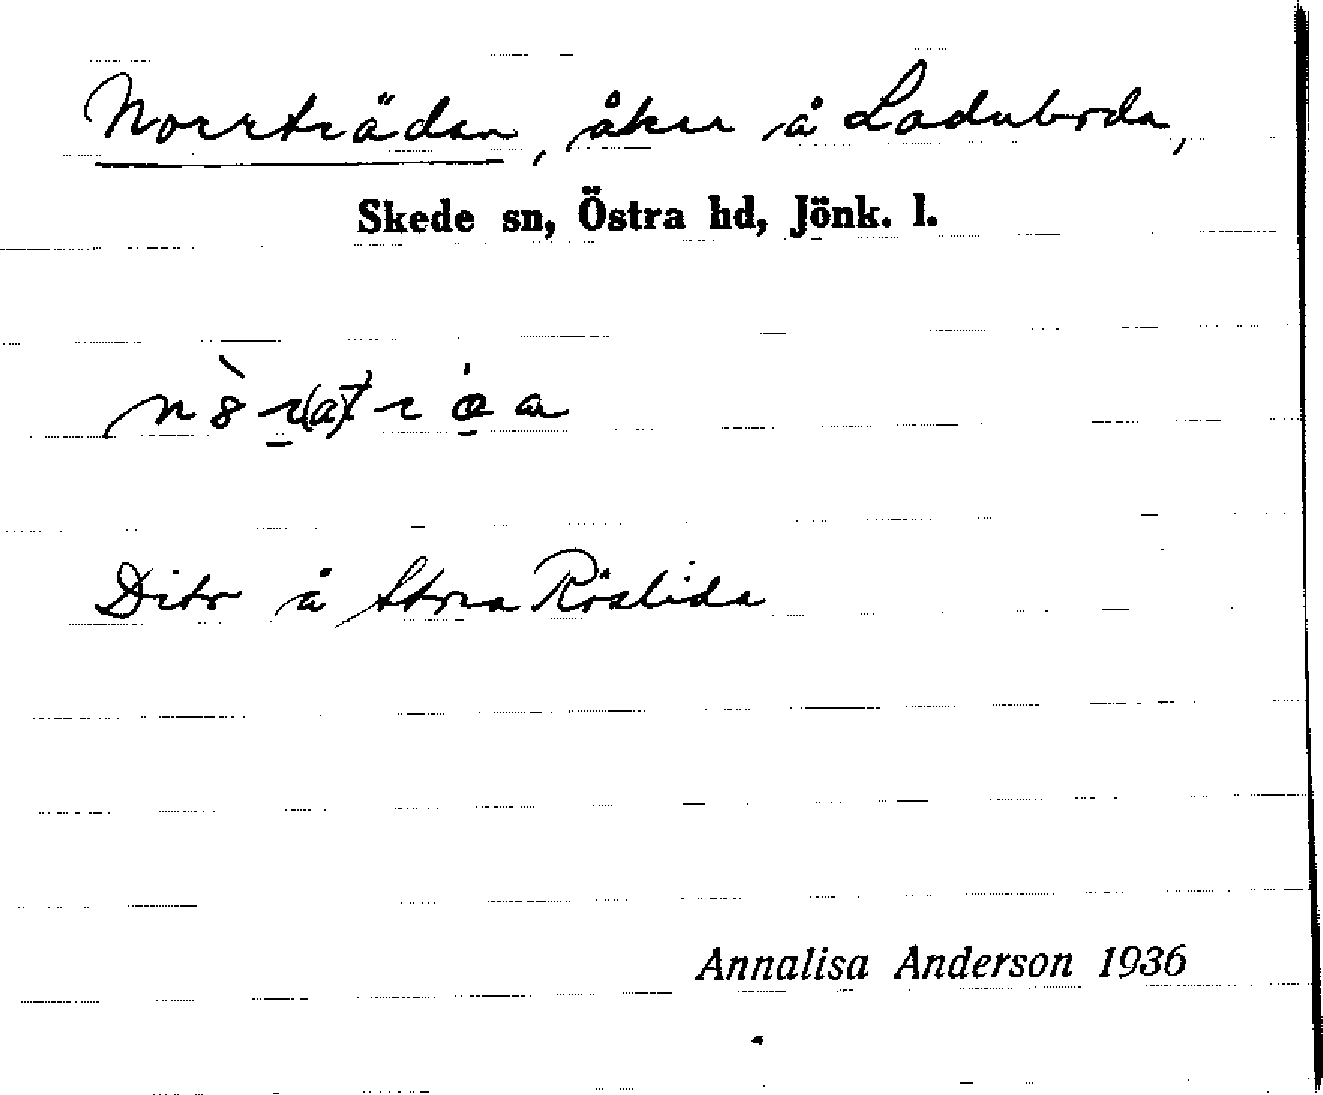 Norrträdan, åker å Laduborda,
Skede sn, Östra hd, Jönk. l.
Dito å Stora Röslida
Annalisa Anderson 1936